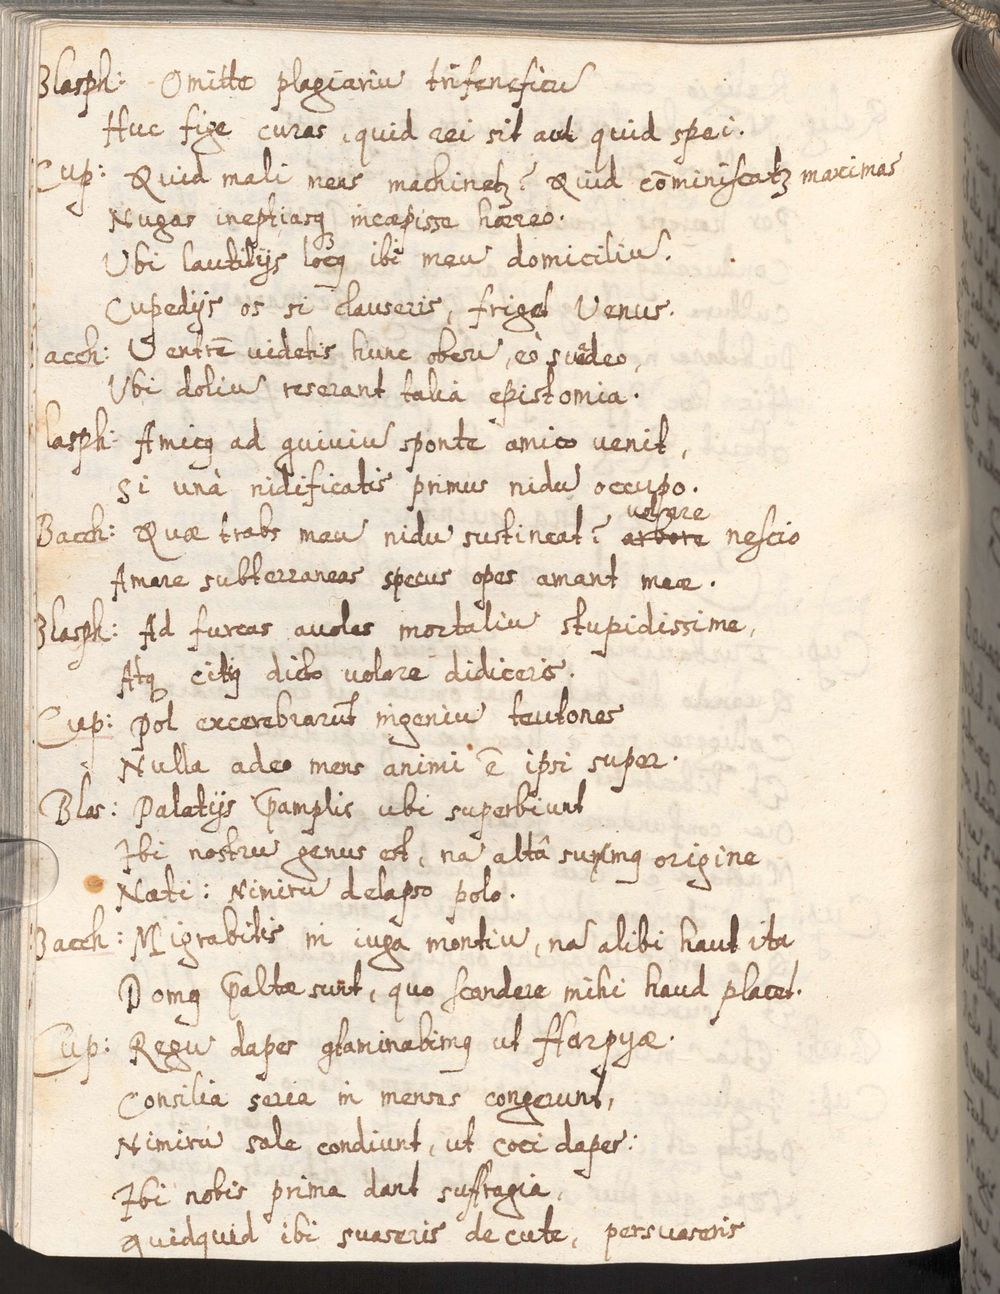 Blasph: Omitte plagiariū trifeneficū
Huc fige curas, quid rei sit aut quid spei.
Cup: Quid mali mens machinetꝫ? Quid cōminiscatꝫ maximas
Nugas ineptiasqꝫ incæpisse horreo.
Ubi lautitijs locꝫ ibi meū domiciliū.
Cupedijs os si clauseris, friget Venus.
acch: Ventrē videtis hunc obesū, eò suadeo,
Ubi doliū reserant talia epistomia.
lasph: Amicꝫ ad quiviū sponte amico venit,
Si unà nidificatis primus nidū occupo.
Bacch: Quæ trabs meū nidū sustineat? volare nescio
Amare subterraneas specus opes amant meæ.
Blasph: Ad furcas avoles mortaliū stupidissime,
Atqꝫ citiꝫ dicto volare didiceris.
Cup: Pol excerebrarūt ingeniū teutones
Nulla adeo mens animi ē ipsi super.
Blas: Palatijs p̄amplis ubi superbiunt
Ibi nostrū genus est, nā altâ sumꝫ origine
Nati: Nimirū delapso polo.
Bacch: Migrabitis in iuga montiū, nā alibi haut ita
Domꝫ p̄altæ sunt, quo scandere mihi haud placet.
Cup: Regū dapes gtaminabimꝫ ut Harpyæ.
Consilia seria in menses congerunt,
Nimirū sale condiunt, ut coci dapes:
Ibi nobis prima dant suffragia,
quidquid ibi suaseris de cute, persuaseris